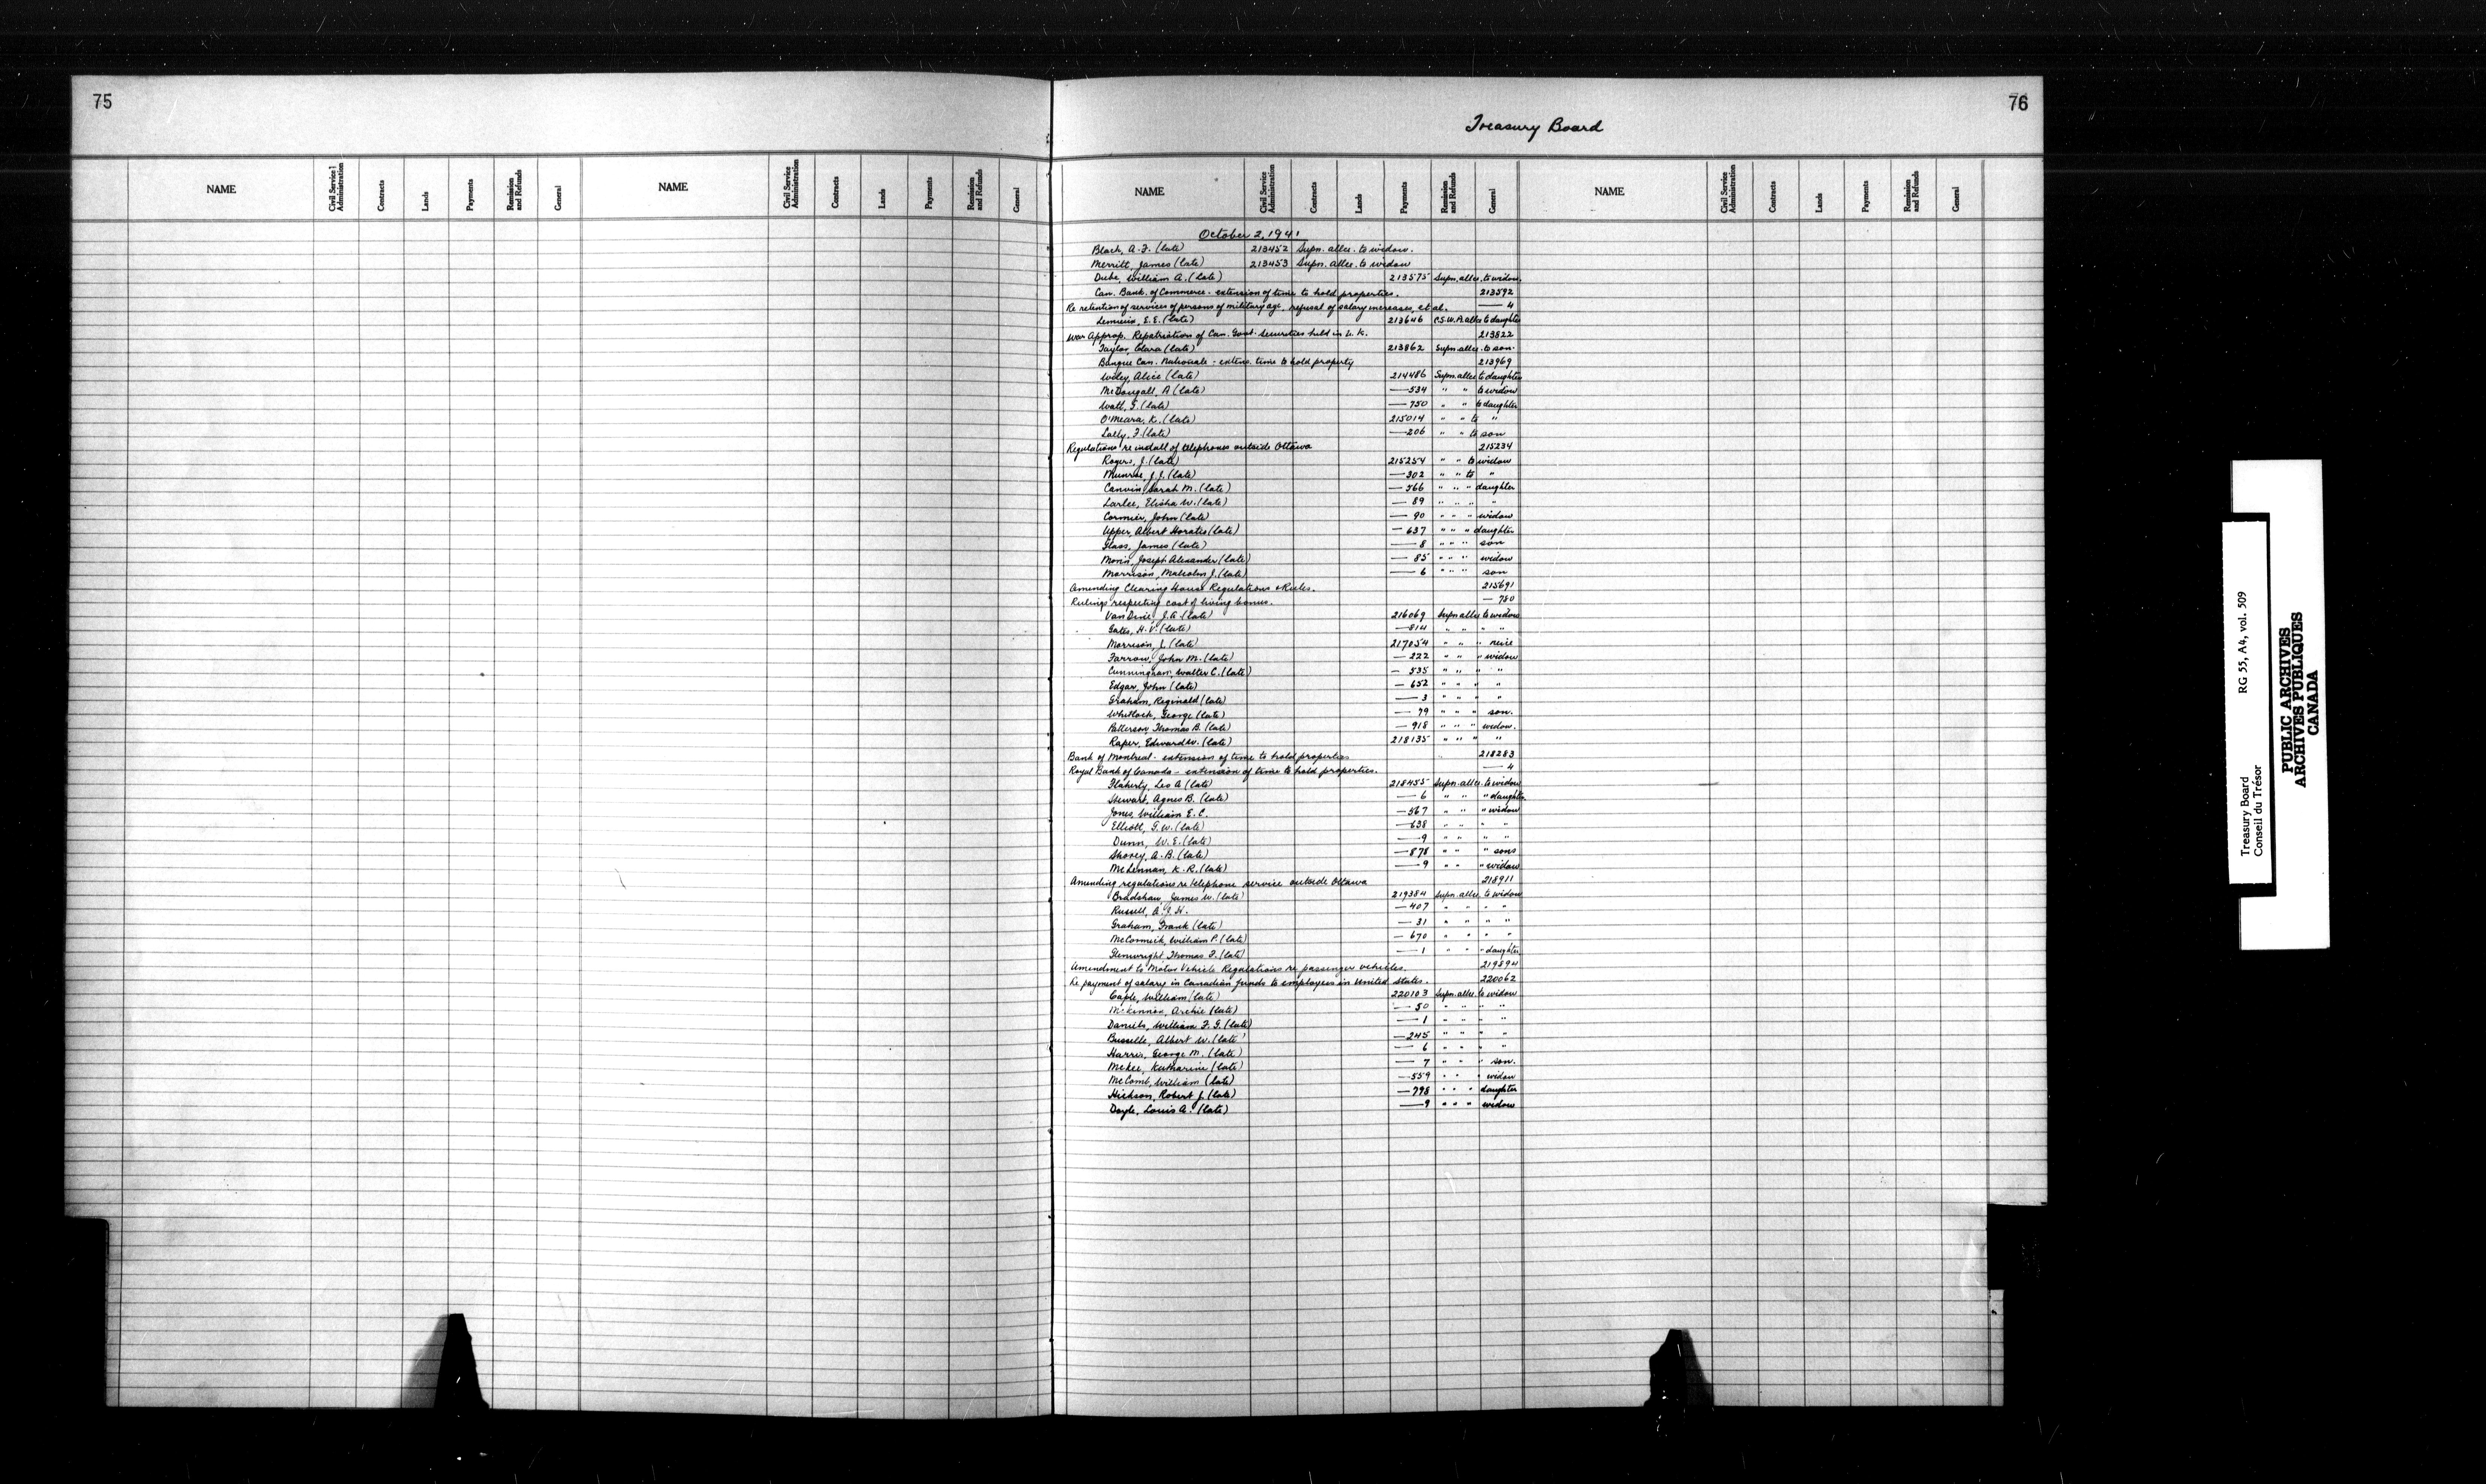 75
76
Treasury Board
NAME Civil Service Administration Contracts Lands Payments Remission and Refunds General NAME Civil Service Administration Contracts Lands Payments Remission and Refunds General
NAME Civil Service Administration Contracts Lands Payments Remission and Refunds General NAME Civil Service Administration Contracts Lands Payments Remission and Refunds General
October 2, 1941
Black, A. F. (late) 213452 Supn. allce. to widow.
Merritt, James (late) 213453 Supn. allce. to widow
Dube, William A. (late) 213575 Supn. allce. to widow.
Can. Bank of Commerce - extension of time to hold properties. 213592
Re retention of services of persons of military age, refusal of salary increases, et al. — 4
Lemieux, E. E. (late) 213646 C.S.W.A. allce to daughter
War Approp. Repatriation of Can. Govt. Securities held in U.K. 213822
Taylor, Clara (late) 213862 Supn. allce. to son.
Banque Can. Nationale - extens. time to hold property 213969
Wiley, Alice (late) 214486 Supn. allce to daughter
McDougall, A (late) — 534 " " to widow
Wall, G. (late) — 750 " " to daughter
O'Meara, K. (late) 215014 " " to "
Lally, F. (late) — 206 " " to son
Regulations re install of telephones outside Ottawa 215234
Rogers, J. (late) 215254 " " to widow
Munroe, J. J. (late) — 302 " " to "
Canvin, Sarah M. (late) — 566 " " " daughter
Larlee, Elisha W. (late) — 89 " " " "
Cormier, John (late) — 90 " " " widow
Upper, Albert Horatio (late) — 637 " " " daughter
Glass, James (late) — 8 " " " son
Morin, Joseph Alexander (late) — 85 " " " widow
Morrison, Malcolm J. (late) — 6 " " " son
Amending Clearing House Regulations & Rules. 215691
Rulings respecting cost of living bonus. — 780
Van Dine, J. A. (late) 216069 Supn. allce to widow
Gates, H. V. (late) — 814 " " " "
Morrison, J. (late) 217054 " " " neice
Farrow, John M. (late) — 222 " " " widow
Cunningham, Walter C. (late) — 535 " " " "
Edgar, John (late) — 652 " " " "
Graham, Reginald (late) — 3 " " " "
Whitlock, George (late) — 79 " " " son.
Patterson Thomas B. (late) — 918 " " " widow.
Raper, Edward W. (late) 218135 " " " "
Bank of Montreal - extension of time to hold properties 218283
Royal Bank of Canada - extension of time to hold properties. — 4
Flaherty, Leo A (late) 218455 Supn. allce. to widow
Stewart, Agnes B. (late) — 6 " " " daughter
Jones, William E. C. — 567 " " " widow
Elliott, G. W. (late) — 638 " " " "
Dunn, W. E. (late) — 9 " " " "
Shorey, A. B. (late) — 878 " " " sons
McLennan, K. R. (late) — 9 " " " widow
Amending regulations re telephone service outside Ottawa 218911
Bradshaw, James W. (late) 219384 Supn. allce. to widow
Russell, A. J. H. — 407 " " " "
Graham, Frank (late) — 31 " " " "
McCormick, William P. (late) — 670 " " " "
Glenwright Thomas F. (late) — 1 " " " daughter
Amendment to Motor Vehicle Regulations re passenger vehicles. 219894
Re payment of salary in Canadian funds to employees in United States. 220062
Caple, William (late) 220103 Supn. allce. to widow
McKinnon, Archie (late) — 50 " " " "
Daniels, William F. G. (late) — 1 " " " "
Busselle, Albert W. (late) — 245 " " " "
Harris, George M. (late) — 6 " " " "
McKee, Katharine (late) — 7 " " " son.
McComb, William (late) — 559 " " " widow
Hickson, Robert J. (late) — 798 " " " daughter
Doyle, Louis A. (late) — 9 " " " widow
Treasury Board RG 55, A4, vol. 509
Conseil du Trésor
PUBLIC ARCHIVES
ARCHIVES PUBLIQUES
CANADA